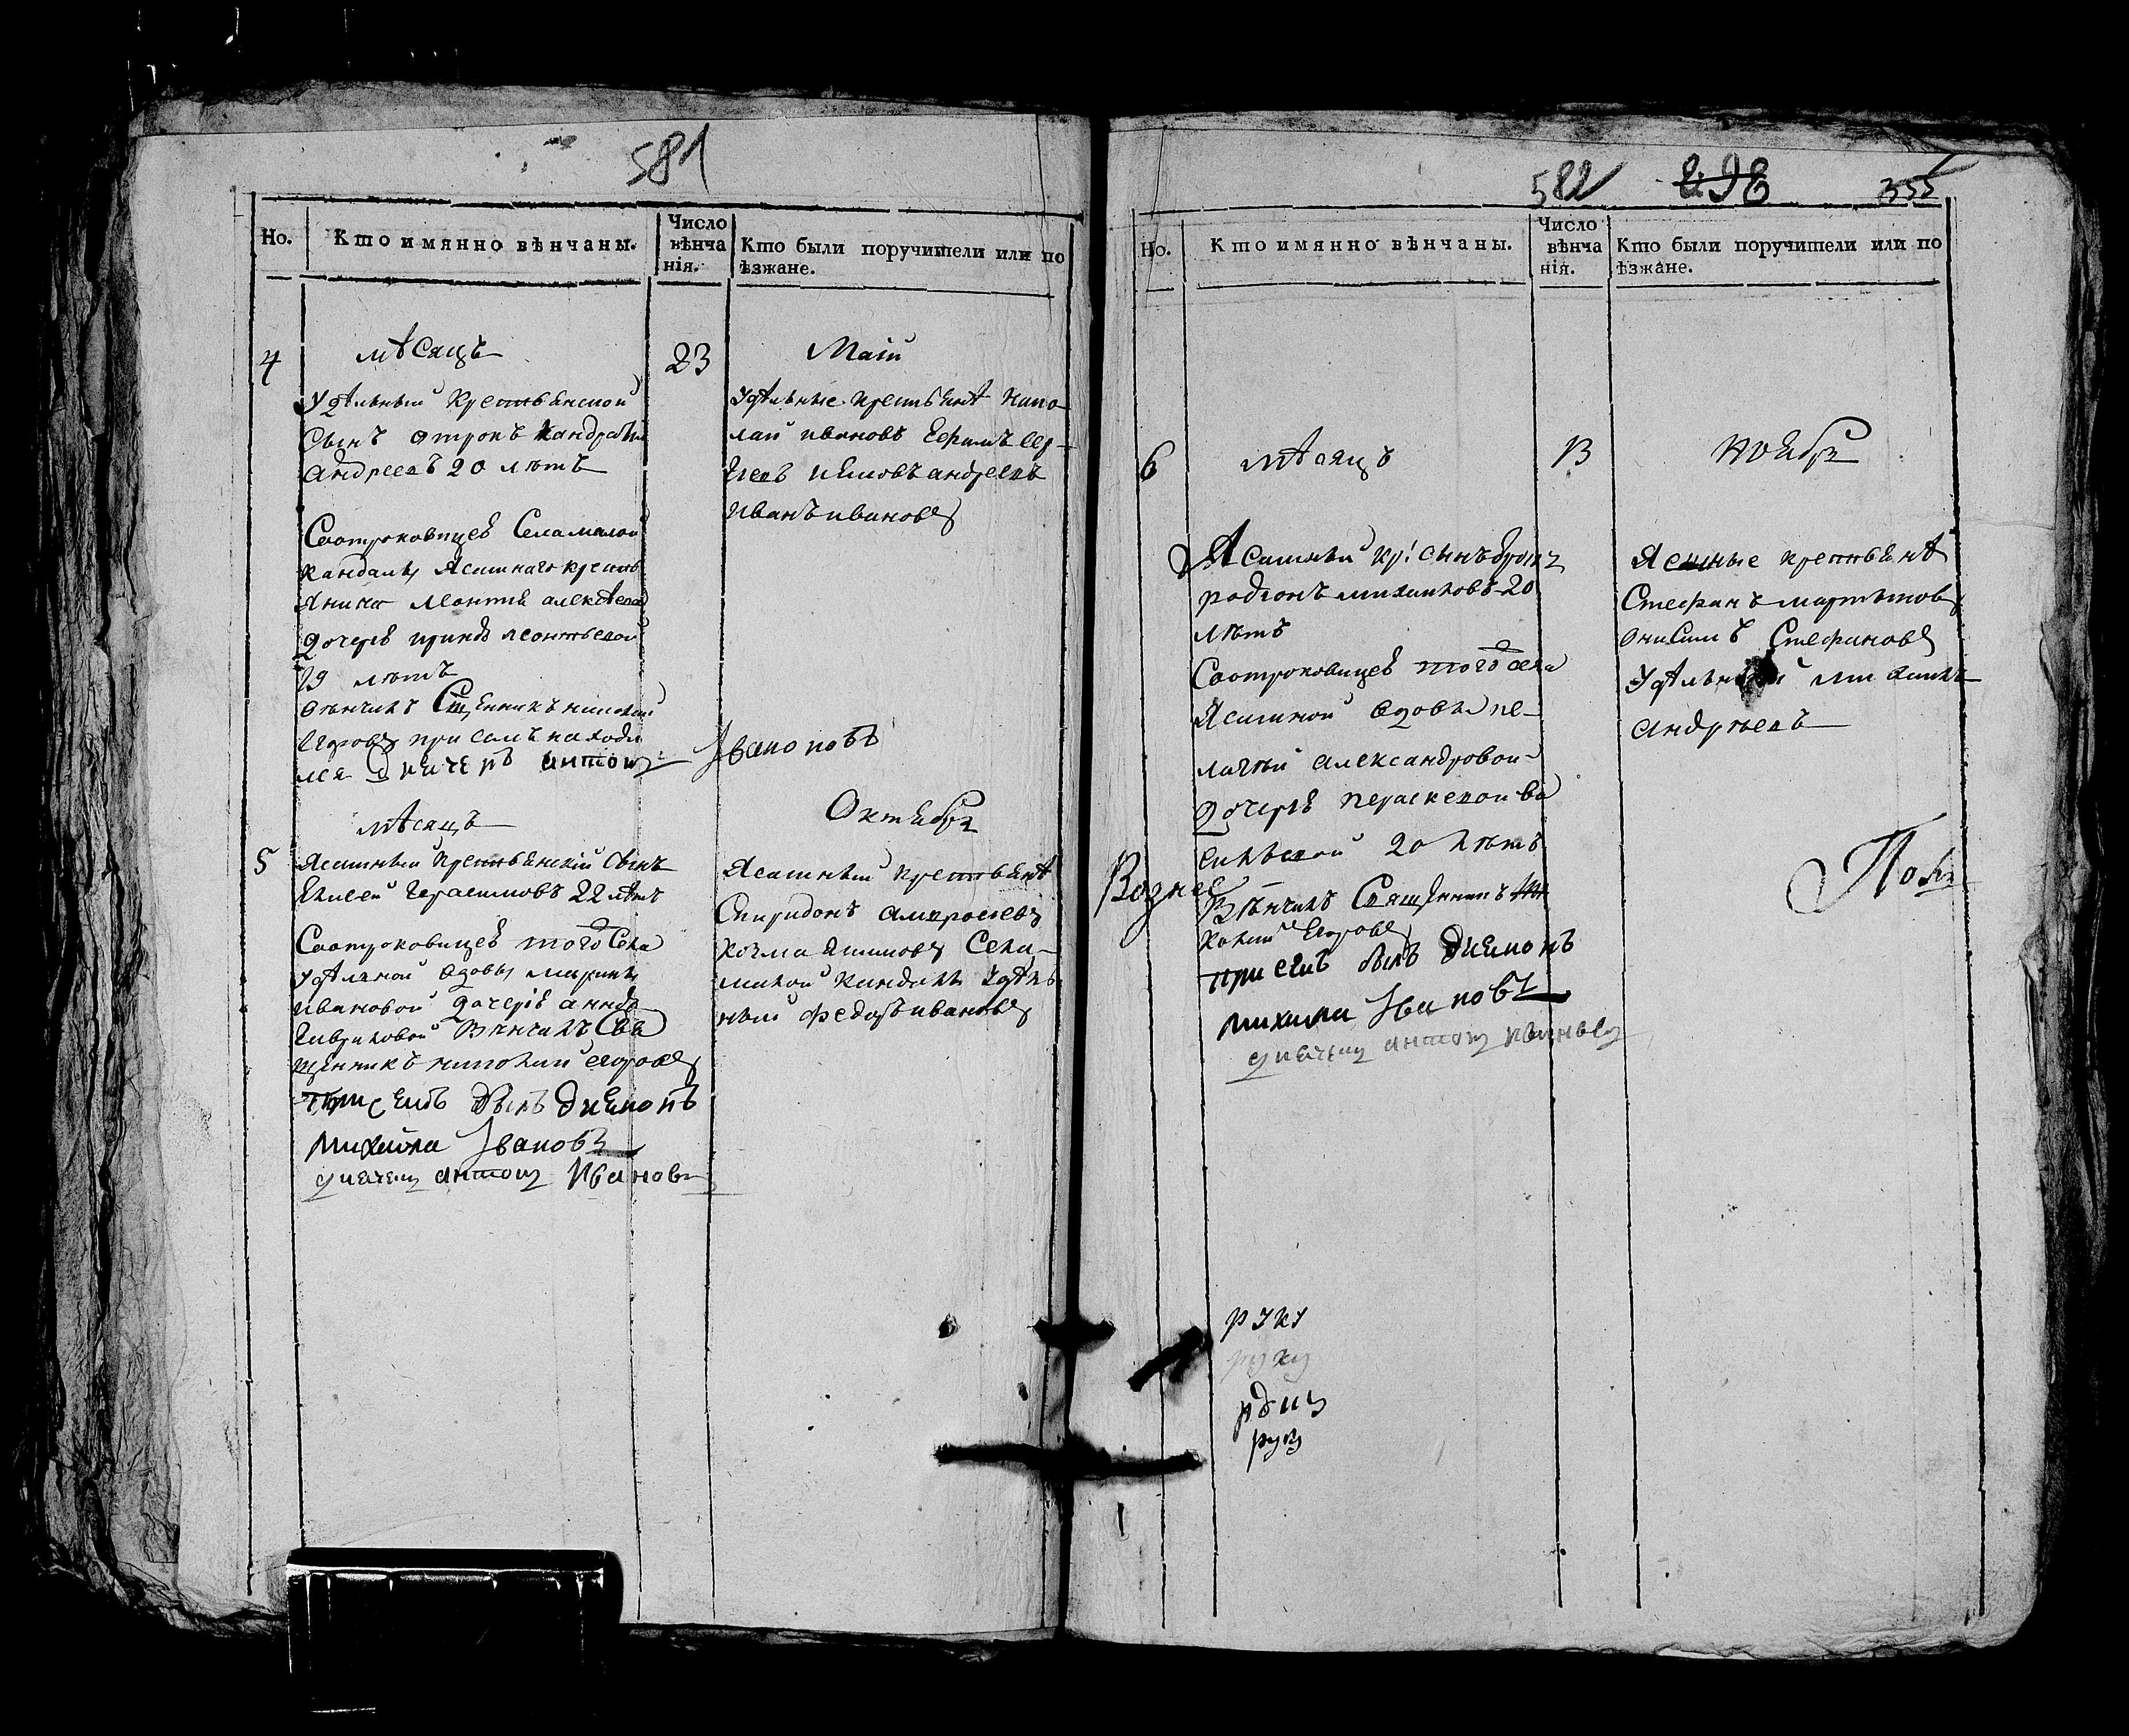 581
Но.
Кто имянно вѣнчаны.
Число
вѣнча
нія.
Кто были поручители или по
ѣзжане.
4
мѣсяцъ
23
Маїи
Удѣльный крестьянской
Сынъ отрокъ Кандратеи
Андреевъ 20 лѣтъ
Соотроковицеѣ Села малой
Кандалы Ясашнаго кресть
янина Леонтия алексѣева
дочерѣ леонтьевой
19 лѣтъ
вѣнчалъ Священникъ николаи
Егоровъ при семъ находи
лся дьячекъ антонъ Iвановъ
Удѣльные крестьянѣ нико
лаи ивановъ Ефимъ сер
геевъ андреевъ
иванъ ивановъ
мѣсяцъ
Октября
5
Ясашный крестьянскій сынъ
Елисей Герасимовъ 22 лѣтъ
Соотроковицеѣ того Села
удѣльной вдовы марины
ивановой дочерѣ анной
Гавриловой Вѣнчалъ Свя
щенникъ николаи егоровъ
при семъ былъ диаконъ
михаила Iвановъ
дьячекъ антонъ Ивановъ
Ясашныи крестьянѣ
Спиридонъ амвросиевъ
козма Села
малой кандалы Удѣль
ный федоръ ивановъ
582 298 355
Но.
Кто имянно вѣнчаны.
Число
вѣнча
нія.
Кто были поручители или по
ѣзжане.
6
мѣсяцъ
13
ноября
Ясашный кр: сынъ отрокъ
родионъ михаиловъ 20
лѣтъ
Соотроковицеѣ того села
Ясашной вдовы пе
лагѣи александровой
дочерѣ пераскевои ва
сильевой 20 лѣтъ
Вѣнчалъ Священникъ ни
колаи Егоровъ
при семъ былъ диаконъ
михаила Iвановъ
дьячекъ антонъ ивановъ
Ясашные крестьянѣ
Стефанъ мартыновъ
онисимъ Стефановъ
Удѣльный михаилъ
андрѣевъ
Вознес
руку
руку